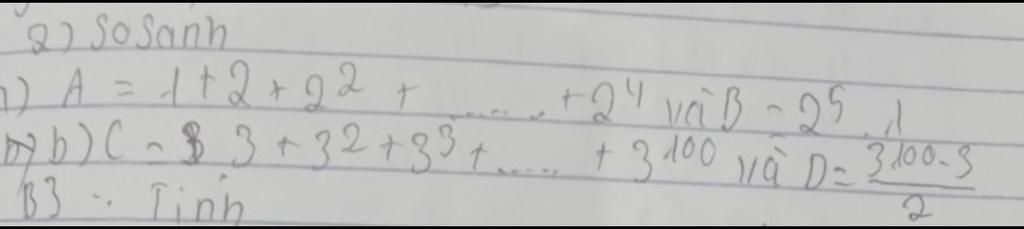 2) SoSanh
1) A = 1 + 2 + 2² + ...... + 2⁴ và B = 2⁵ . 1
b) C = 3 + 3² + 3³ + ...... + 3¹⁰⁰ và D = (3¹⁰⁰ - 3)/2
B3 : Tinh